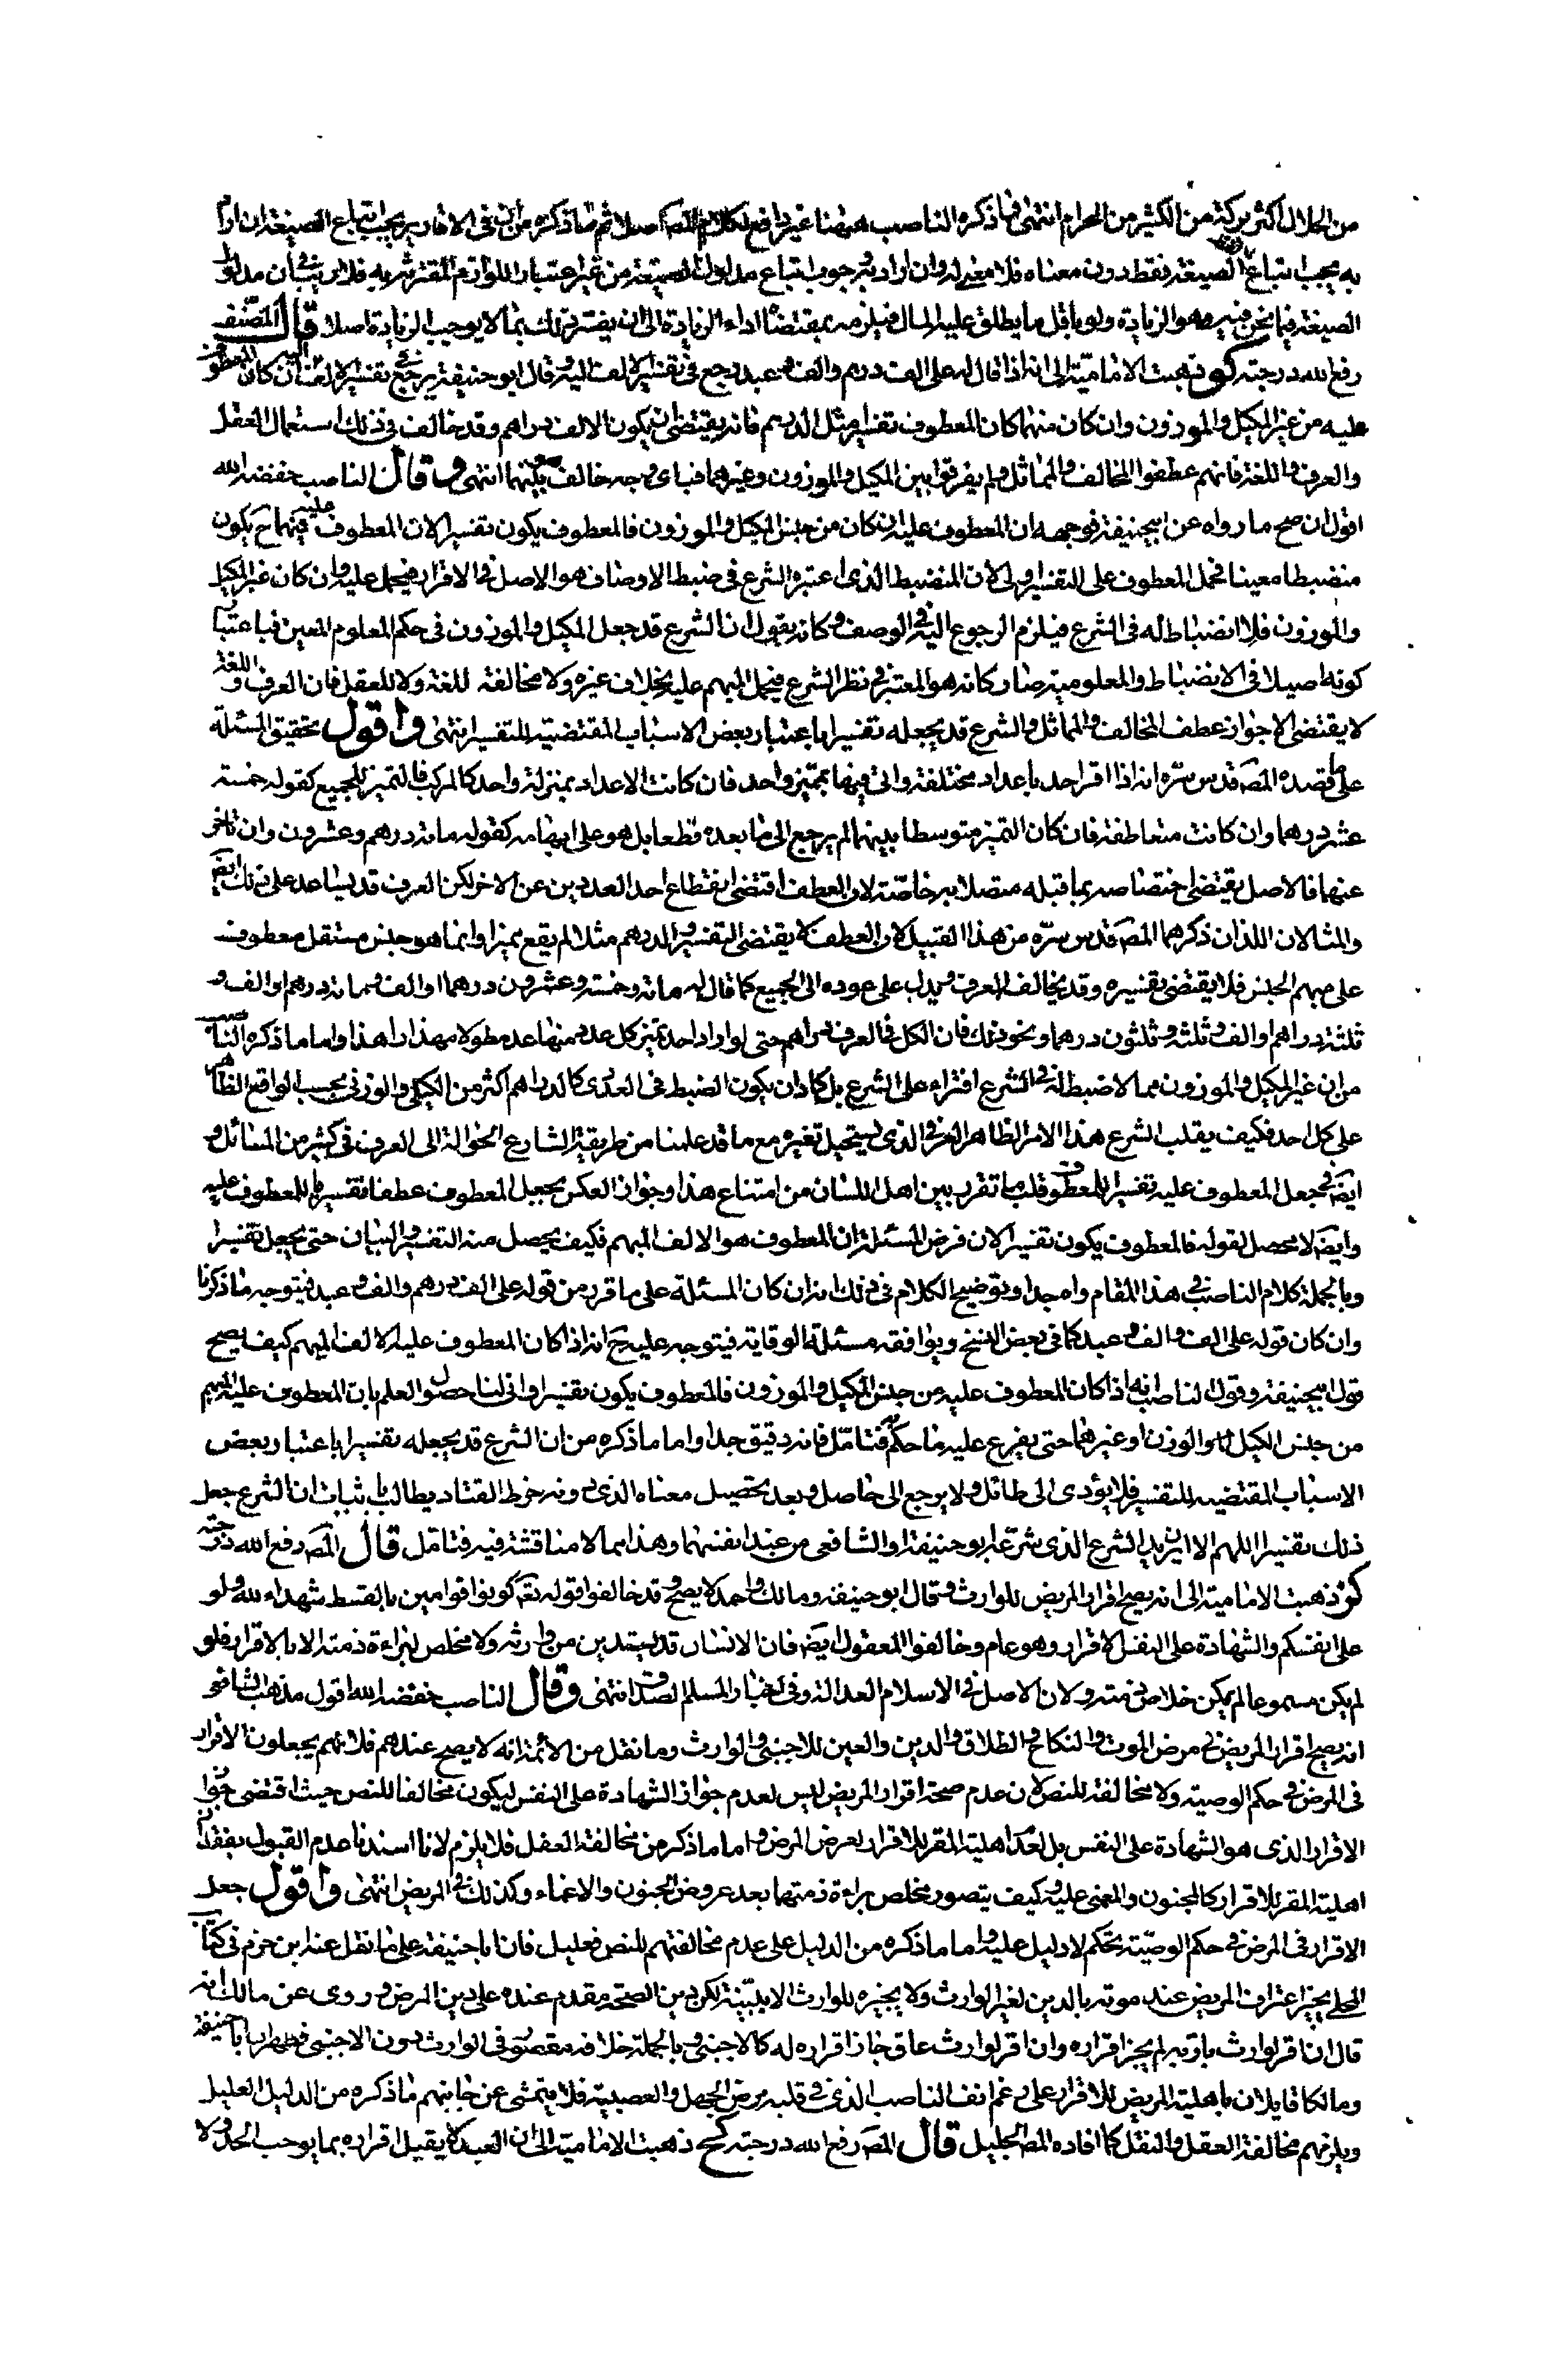 من الحلال اكثر بركة من الكثير من الحرام انتهى فما ذكره الناصب هيهنا غير دافع لكلام المصَ اصلا ثم ما ذكره من ان فى الاقارير يجب اتباع الصيغة ان اراد
به يجب اتباع الصيغة فقط دون معناه فلا معنى له وان اراد به وجوب اتباع مدلول الصيغة من غير اعتبار اللوازم المقترنة به فلا ريب فى ان مدلول
الصيغة فيما نحن فيه وهو الزيادة ولو باقل ما يطلق عليه المال فيلزمه بمقتضاه اداء الزيادة الى ان يفسر ذلك بما لا يوجب الزيادة اصلا قال المصنف
رفع الله درجته كو ذهبت الامامية الى انه اذا قال له على الف درهم والف وعبد رجع فى تفسير الالف اليه وقال ابو حنيفة يرجع فى تفسير الالف اليه ان كان المعطوف
عليه من غير المكيل والموزون وان كان منهما كان المعطوف تفسيرا مثل الدرهم فانه يقتضى ان يكون الالف دراهم وقد خالف فى ذلك استعمال العقل
والعرف واللغة فانهم عطفوا المخالف والمماثل ولم يفرقوا بين المكيل والموزون وغيرهما فباى وجه خالف بينهما انتهى وقال الناصب خفضه الله
اقول ان صح ما رواه عن ابيحنيفة فوجهه ان المعطوف عليه ان كان من جنس المكيل والموزون فالمعطوف يكون تفسيرا لان المعطوف عليه فيهما ح يكون
منضبطا معينا فحمل المعطوف على التفسير اولى لان المنضبط الذى اعتبره الشرع فى ضبط الاوصاف هو الاصل فى الاقرار فيحمل عليه وان كان غير المكيل
والموزون فلا انضباط له فى الشرع فيلزم الرجوع اليه فى الوصف وكانه يقول ان الشرع قد جعل المكيل والموزون فى حكم المعلوم المعين فباعتبار
كونه اصيلا فى الانضباط والمعلومية صار كانه هو المعتبر فى نظر الشرع فيحمل المبهم عليه بخلاف غيره ولا مخالفة للغة ولا للعقل فان العرف واللغة
لا يقتضى الا جواز عطف المخالف والمماثل والشرع قد يجعله تفسيرا باعتبار بعض الاسباب المقتضية للتفسير انتهى واقول تحقيق المسئلة
على ما قصده المصَ قدس سرّه انه اذا اقر احد باعداد مختلفة واتى فيها بمميز واحد فان كانت الاعداد بمنزلة واحد كالمركب فالتميز للجميع كقوله خمسة
عشر درهما وان كانت متعاطفة فان كان التميز متوسطا بينها لم يرجع الى ما بعده قطعا بل هو على ابهامه كقوله مائة درهم وعشرون وان تاخر
عنها فالاصل يقتضى اختصاصه بما قبله متصلا به خاصّة لان العطف اقتضى انقطاع احد العددين عن الاخر لكن العرف قد يساعد على ذلك ايضَ
والمثالان اللذان ذكرهما المصَ قدس سرّه من هذا القبيل لان العطف لا يقتضى التفسير والدرهم مثلا لم يقع مميزا وانما هو جنس مستقل معطوف
على مبهم الجنس فلا يقتضى تفسيره وقد يخالف العرف ويدل على عوده الى الجميع كما قال له مائة وخمسة وعشرون درهما او الف ومائة درهم او الف و
ثلثة دراهم والف وثلثة وثلثون درهما ونحو ذلك فان الكل فى العرف دراهم حتى لو اراد احد تميز كل عدد منها عد مطولا مهذارا هذا واما ما ذكره الناصب
من ان غير المكيل والموزون مما لا ضبط له فى الشرع افتراء على الشرع بل كاد ان يكون الضبط فى العددى كالدراهم اكثر من الكيلى والوزنى بحسب الواقع الظاهر
على كل احد فكيف يقلب الشرع هذا الامر الظاهر العرفى الذى يستحيل تغيره مع ما قد علمنا من طريقة الشارع الحوالة الى العرف فى كثير من المسائل و
ايضَ جعل المعطوف عليه تفسيرا للمعطوف قلب ما تقرر بين اهل اللسان من امتناع هذا وجواز العكس بجعل المعطوف عطفا تفسيريا للمعطوف عليه
وايضَ لا محصل لقوله فالمعطوف يكون تفسيرا لان فرض المسئلة ان المعطوف هو الالف المبهم فكيف يحصل منه التفسير والبيان حتى يجعل تفسيرا
وبالجملة كلام الناصب فى هذا المقام واه جدا وتوضيح الكلام فى ذلك انه ان كان المسئلة على ما قرر من قوله على الف درهم والف وعبد فيتوجه ما ذكرنا
وان كان قوله على الف والف وعبد كما فى بعض النسخ ويوافقه مسئلة الوقاية فيتوجه عليه ح انه اذا كان المعطوف عليه الالف المبهم كيف يصح
قول ابيحنيفة وقول الناصب انه اذا كان المعطوف عليه من جنس المكيل والموزون فالمعطوف يكون تفسيرا وانى لنا حصول العلم بان المعطوف عليه المبهم
من جنس الكيل او الوزن او غيرهما حتى يفرع عليه ما حكم به فتامّل فانه دقيق جدا واما ما ذكره من ان الشرع قد يجعله تفسيرا باعتبار بعض
الاسباب المقتضيه للتفسير فلا يؤدى الى طائل ولا يرجع الى حاصل وبعد تحصيل معناه الذى دونه خرط القتاد يطالب باثبات ان الشرع جعل
ذلك تفسيرا اللهم الا ان يريد الشرع الذى شرّعه ابو حنيفة او الشافعى من عند انفسهما وهذا مما لا مناقشة فيه فتامل قال المصَ رفع الله درجته
كز ذهبت الامامية الى انه يصح اقرار المريض للوارث وقال ابو حنيفة ومالك واحمد لا يصح وقد خالفوا قوله تعَ كونوا قوامين بالقسط شهداء لله ولو
على انفسكم والشهادة على النفس الاقرار وهو عام وخالفوا المعقول ايضَ فان الانسان قد يستدين من وارثه ولا مخلص لبراءة ذمته الا بالاقرار فلو
لم يكن مسموعا لم يمكن خلاص ذمته ولان الاصل فى الاسلام العدالة وفى اخبار المسلم الصدق انتهى وقال الناصب خفضه الله اقول مذهب الشافعى
انه يصح اقرار المريض فى مرض الموت والنكاح والطلاق والدين والعين للاجنبى والوارث وما نقل من الائمة انه لا يصح عندهم فلانهم يجعلون الاقرار
فى المرض فى حكم الوصية ولا مخالفة للنص لان عدم صحة اقرار المريض ليس لعدم جواز الشهادة على النفس ليكون مخالفا للنص حيث اقتضى جواز
الاقرار الذى هو الشهادة على النفس بل لعدم اهلية المقر للاقرار لعرض المرض واما ما ذكر من مخالفة العقل فلا يلزم لانا اسندنا عدم القبول بفقدان
اهلية المقر للاقرار كالمجنون والمغمى عليه وكيف يتصور مخلص براءة ذمتهما بعد عروض الجنون والاغماء وكذلك فى المريض انتهى واقول جعل
الاقرار فى المرض فى حكم الوصيّة تحكم لا دليل عليه واما ما ذكره من الدليل على عدم مخالفتهم للنص فعليل فان ابا حنيفة على ما نقل عنه ابن حزم فى كتاب
المحلى يجيز اعتراف المريض عند موته بالدين لغير الوارث ولا يجيزه للوارث الا ببيّنة لكن دين الصحة مقدم عنده على دين المرض وروى عن مالك انه
قال ان اقر لوارث بارّ به لم يجز اقراره وان اقر لوارث عاق جاز اقراره له كالاجنبى وبالجملة خلافه مقصور فى الوارث دون الاجنبى فظهر ان ابا حنيفة
ومالكا قايلان باهلية المريض للاقرار على رغم انف الناصب الذى فى قلبه مرض الجهل والعصبية فلا يتمشى عن جانبهم ما ذكره من الدليل العليل
ويلزمهم مخالفة العقل والنقل كما افاده المصَ الجليل قال المصَ رفع الله درجته كح ذهبت الامامية الى ان العبد لا يقبل اقراره بما يوجب الحد ولا